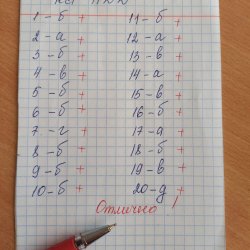 1-б + 11-б +
2-а + 12-а +
3-б + 13-в +
4-в + 14-а +
5-б + 15-в +
6-б + 16-б +
7-г + 17-а +
8-б + 18-б +
9-б + 19-в +
10-б + 20-д +
Отлично!